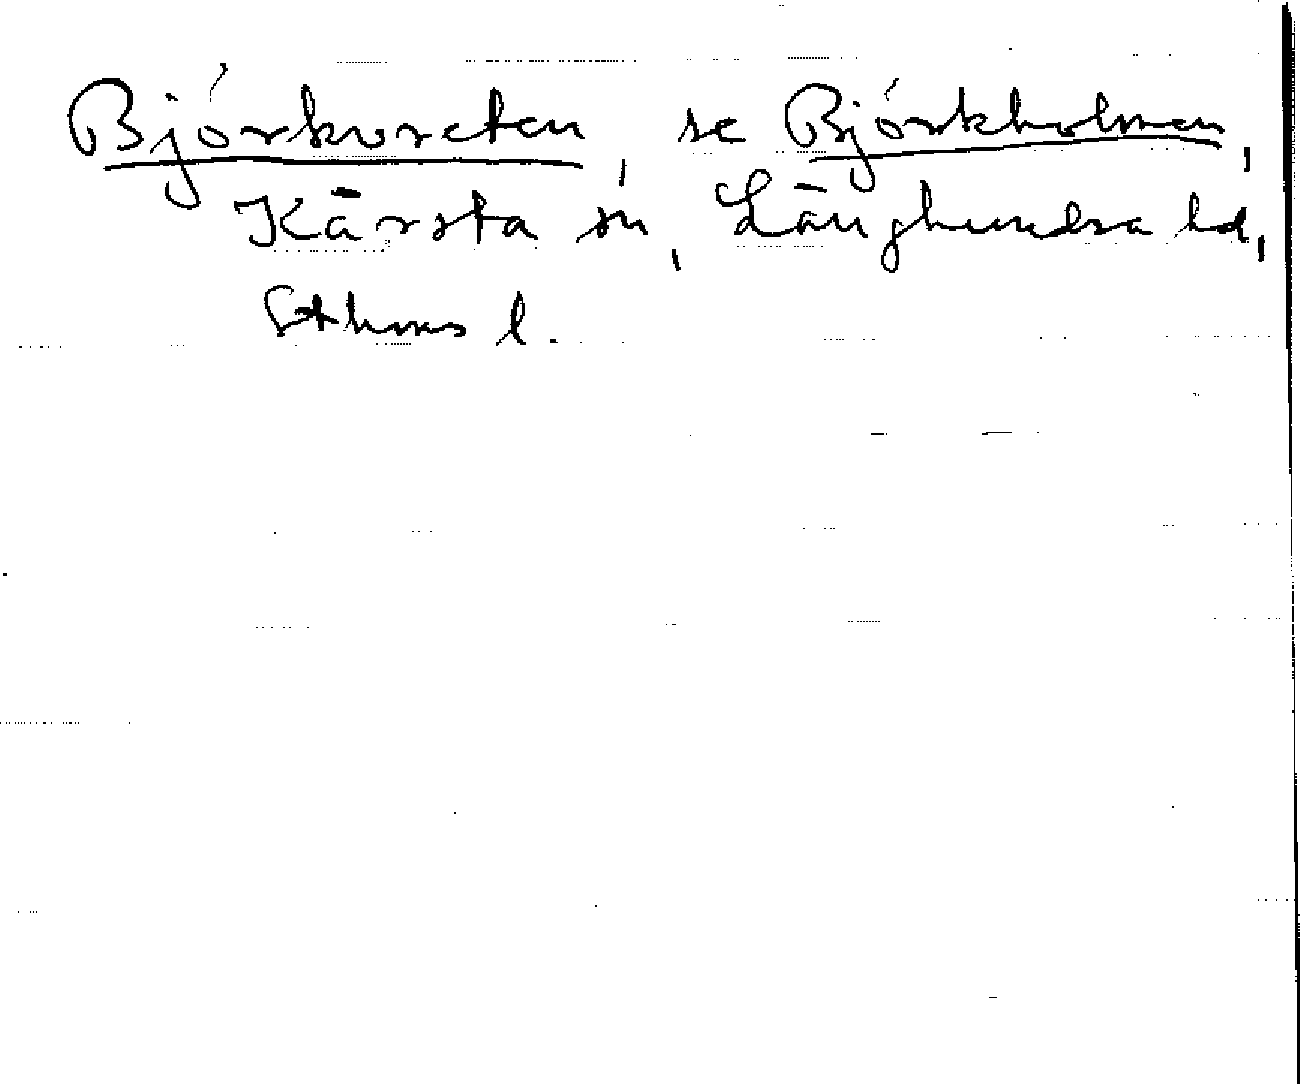 Björkvreten, se Björkholmen,
Kårsta sn, Långhundra hd,
Sthms l.